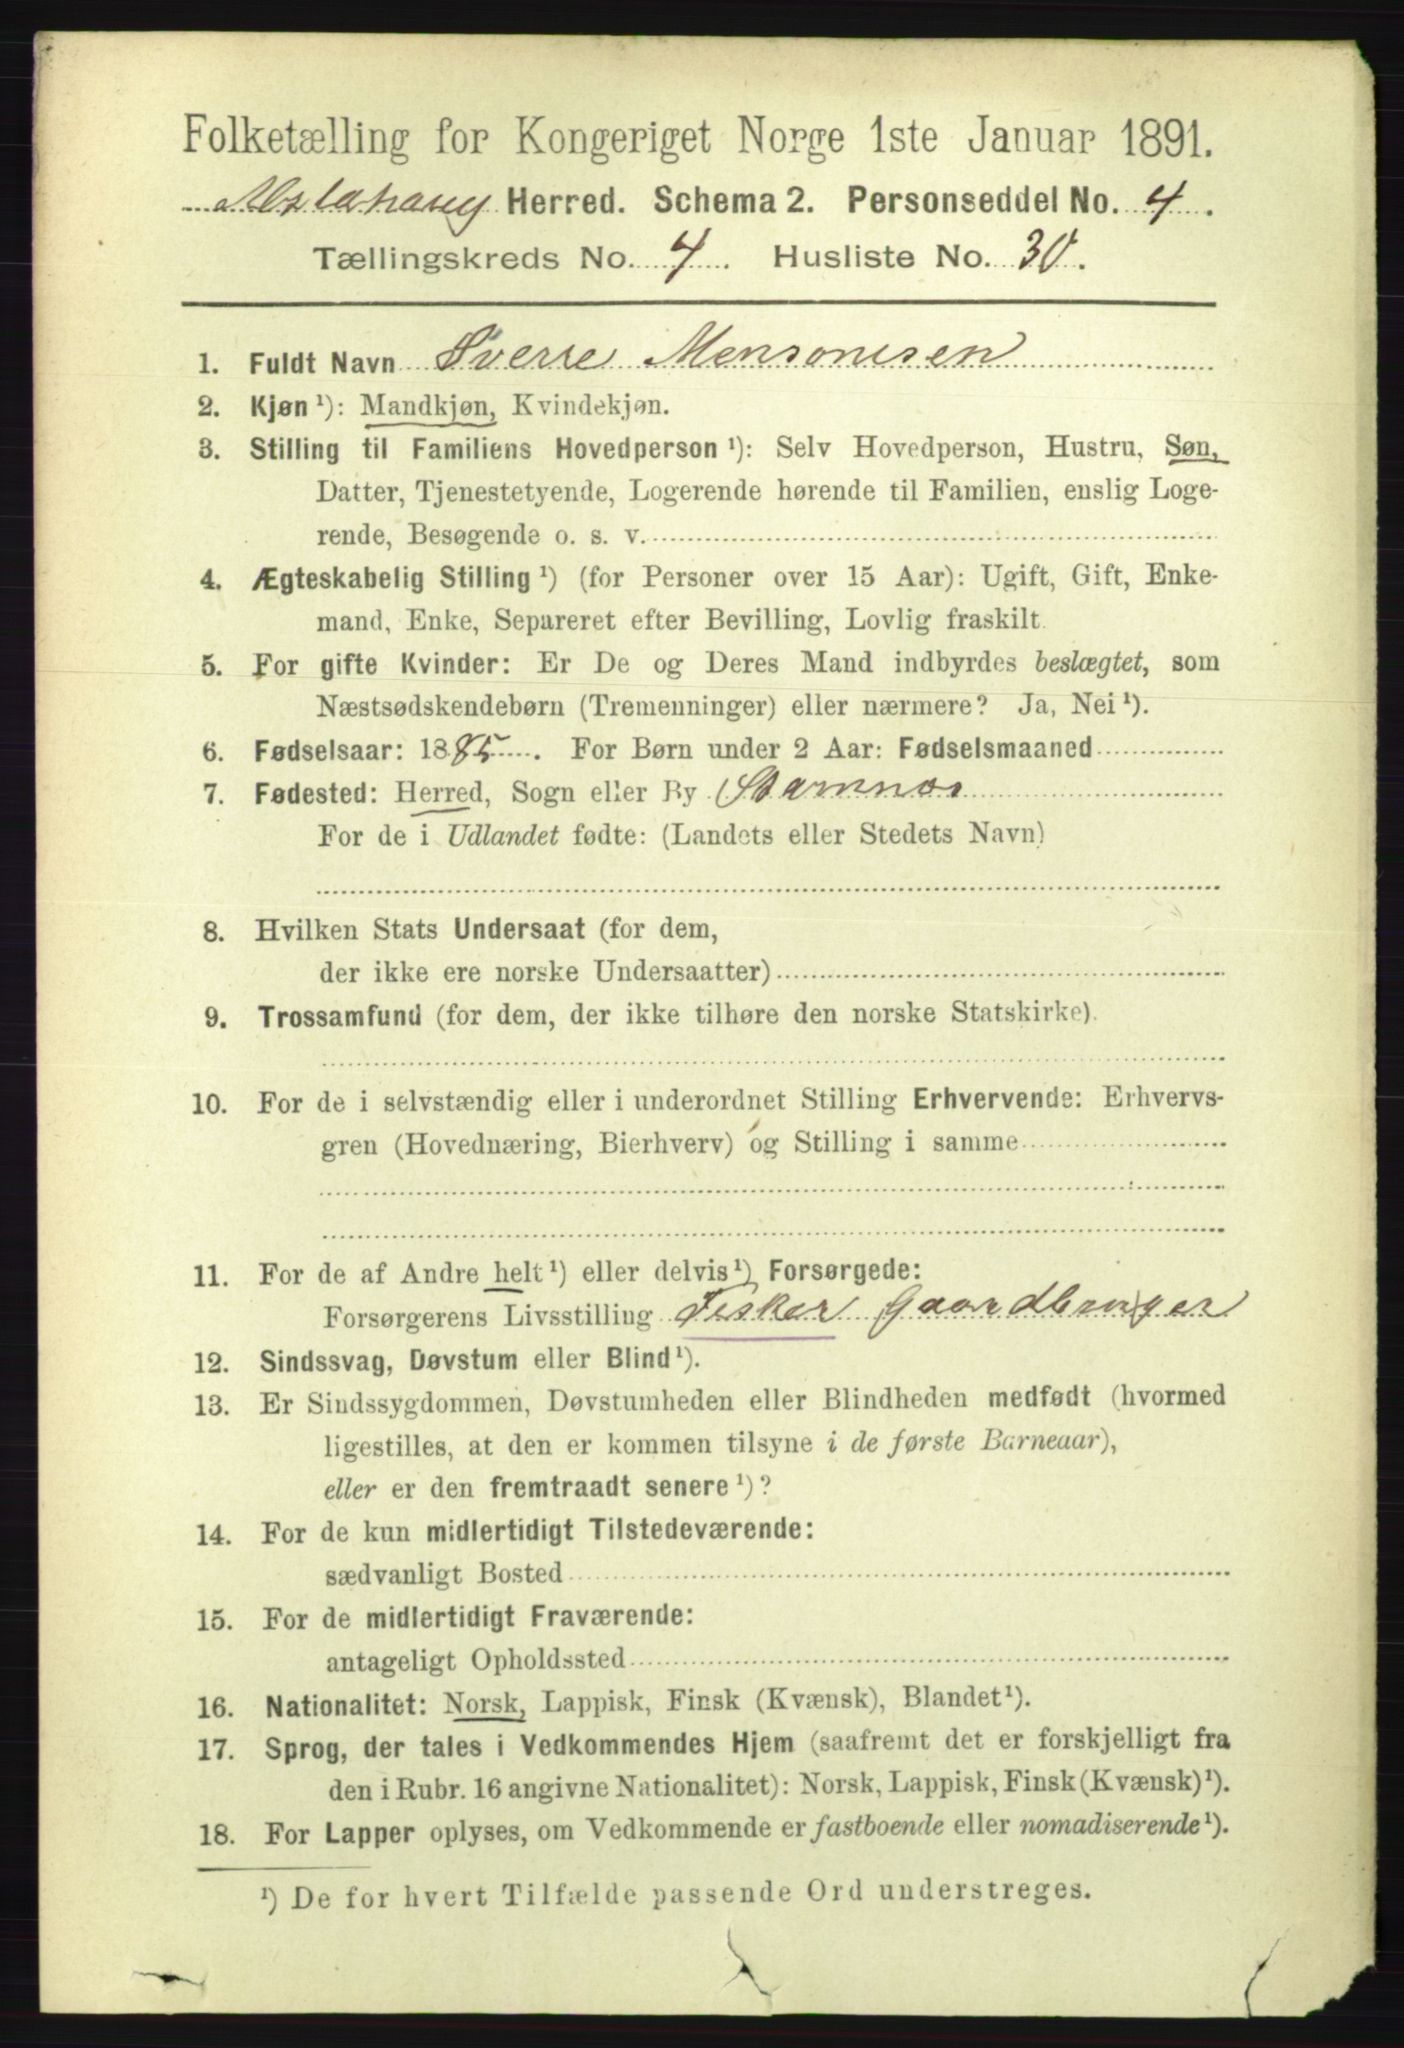 Folketælling for Kongeriget Norge 1ste Januar 1891.
Alstahaug Herred. Schema 2. Personseddel No. 4.
Tællingskreds No. 4. Husliste No. 30.
1. Fuldt Navn Sverre Mensonisen
2. Kjøn ¹): Mandkjøn, Kvindekjøn.
3. Stilling til Familiens Hovedperson ¹): Selv Hovedperson, Hustru, Søn,
Datter, Tjenestetyende, Logerende hørende til Familien, enslig Loge-
rende, Besøgende o. s. v.
4. Ægteskabelig Stilling ¹) (for Personer over 15 Aar): Ugift, Gift, Enke-
mand, Enke, Separeret efter Bevilling, Lovlig fraskilt.
5. For gifte Kvinder: Er De og Deres Mand indbyrdes beslægtet, som
Næstsødskendebørn (Tremenninger) eller nærmere? Ja, Nei ¹).
6. Fødselsaar: 1885. For Børn under 2 Aar: Fødselsmaaned
7. Fødested: Herred, Sogn eller By Stamnes
For de i Udlandet fødte: (Landets eller Stedets Navn)
8. Hvilken Stats Undersaat (for dem,
der ikke ere norske Undersaatter)
9. Trossamfund (for dem, der ikke tilhøre den norske Statskirke).
10. For de i selvstændig eller i underordnet Stilling Erhvervende: Erhvervs-
gren (Hovednæring, Bierhverv) og Stilling i samme
11. For de af Andre helt ¹) eller delvis ¹) Forsørgede:
Forsørgerens Livsstilling Fisker Gaardbruger
12. Sindssvag, Døvstum eller Blind ¹).
13. Er Sindssygdommen, Døvstumheden eller Blindheden medfødt (hvormed
ligestilles, at den er kommen tilsyne i de første Barneaar),
eller er den fremtraadt senere ¹)?
14. For de kun midlertidigt Tilstedeværende:
sædvanligt Bosted
15. For de midlertidigt Fraværende:
antageligt Opholdssted
16. Nationalitet: Norsk, Lappisk, Finsk (Kvænsk), Blandet ¹).
17. Sprog, der tales i Vedkommendes Hjem (saafremt det er forskjelligt fra
den i Rubr. 16 angivne Nationalitet): Norsk, Lappisk, Finsk (Kvænsk) ¹).
18. For Lapper oplyses, om Vedkommende er fastboende eller nomadiserende ¹).
¹) De for hvert Tilfælde passende Ord understreges.